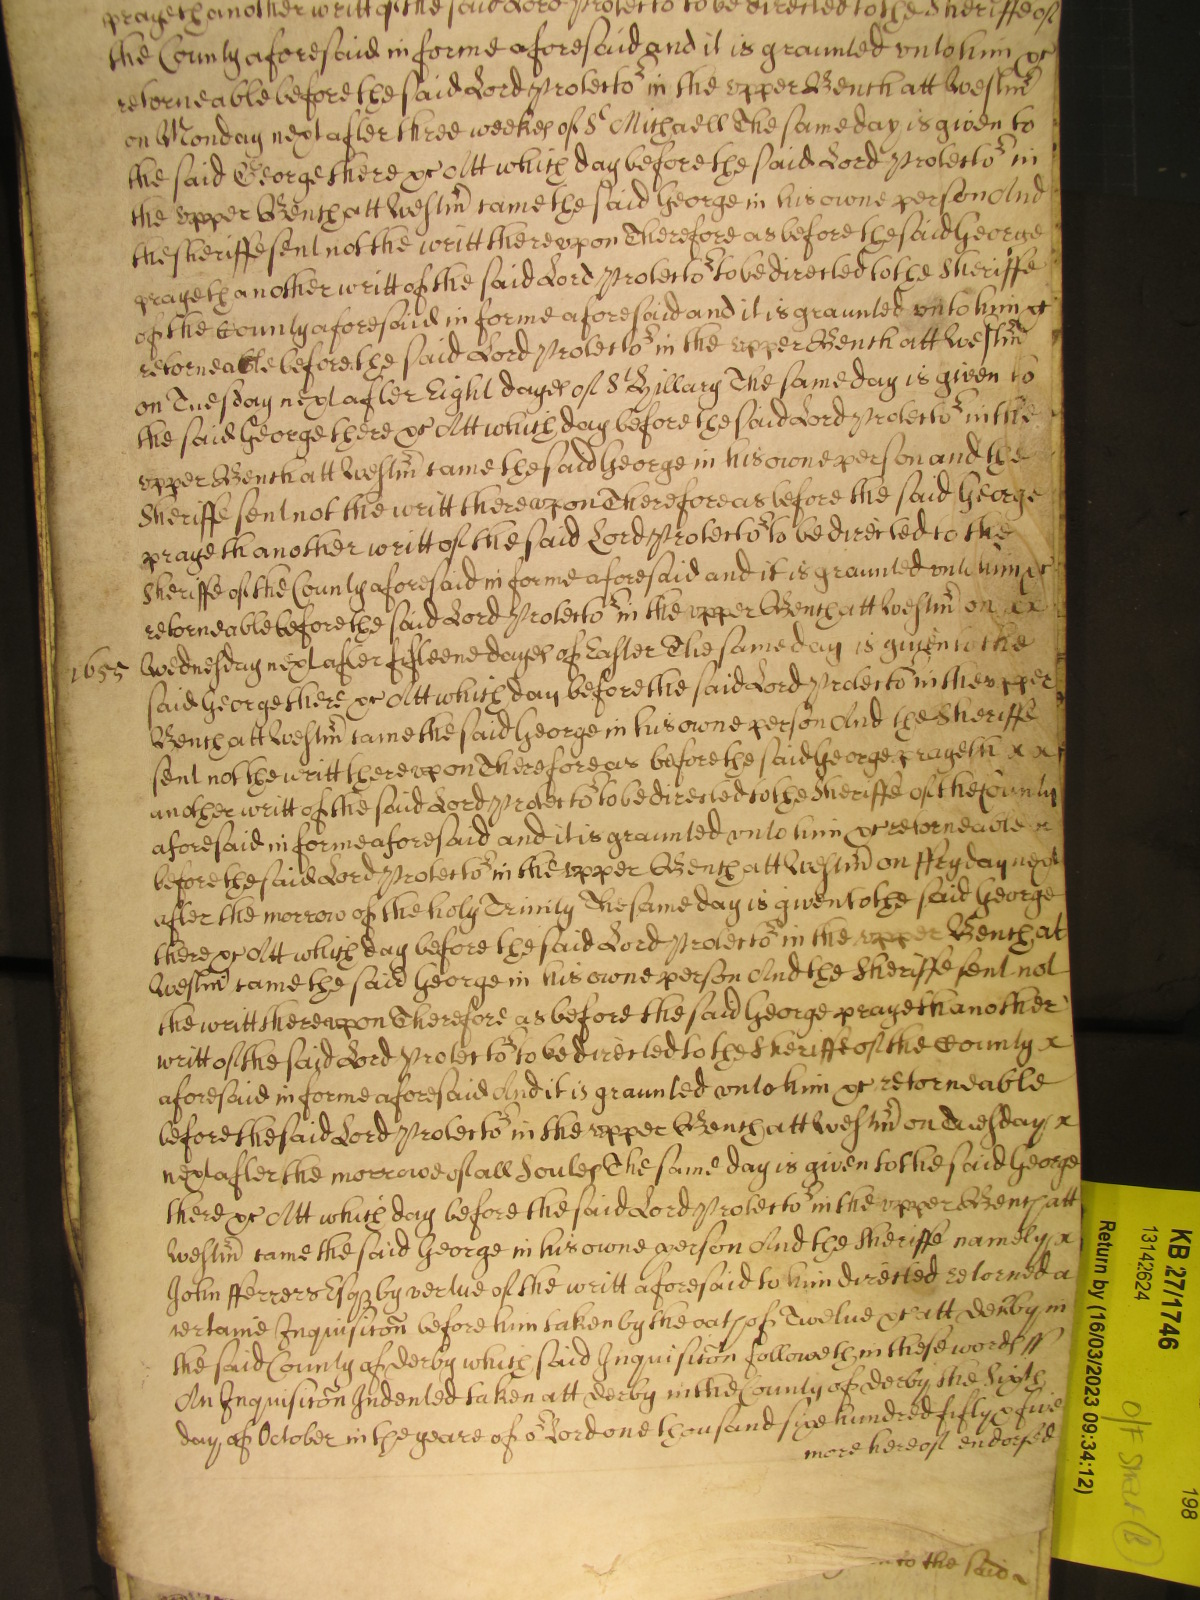 prayeth another writt of the said Lord Protecto.r to be directed to the Sheriffe of
the County aforesaid in forme aforesaid and it is graunted vnto him &c
retorneable before the said Lord Protecto.r in the vpper Bench att Westm.r
on Monday next after three weekes of S.t Michaell The same day is given to
the said George there &c Att which day before the said Lord Protecto.r in
the vpper Bench att Westm.r came the said George in his owne person And
the sheriffe sent not the writt therevpon Therefore as before the said George
prayeth another writt of the said Lord Protecto.r to be directed to the Sheriffe
of the County aforesaid in forme aforesaid and it is graunted vnto him &c
retorneable before the said Lord Protecto.r in the vpper Bench att Westm.r
on Tuesday next after Eight dayes of S.t Hillary The same day is given to
the said George there &c Att which day before the said Lord Protecto.r in the
vpper Bench att Westm.r came the said George in his owne person and the
Sheriffe sent not the writt therevpon Therefore as before the said George
prayeth another writt of the said Lord Protecto.r to be directed to the
Sheriffe of the County aforesaid in forme aforesaid and it is graunted vnto him &c
retorneable before the said Lord Protecto.r in the vpper Bench att Westm.r on x x
1655 Wednesday next after fifteene dayes of Easter The same day is given to the
said George there &c Att which day before the said Lord Protecto.r in the vpper
Bench att Westm.r came the said George in his owne person And the Sheriffe
sent not the writt therevpon Therefore as before the said George prayeth x x
another writt of the said Lord Protecto.r to be directed to the Sheriffe of the County
aforesaid in forme aforesaid and it is graunted vnto him &c retorneable x
before the said Lord Protecto.r in the vpper Bench att Westm.r on ffryday next
after the morrow of the holy Trinity The same day is given to the said George
there &c Att which day before the said Lord Protecto.r in the vpper Bench at
Westm.r came the said George in his owne person And the Sheriffe sent not
the writt therevpon Therefore as before the said George prayeth another
writt of the said Lord Protecto.r to be directed to the Sheriffe of the County x
aforesaid in forme aforesaid And it is graunted vnto him &c retorneable
before the said Lord Protecto.r in the vpper Bench att Westm.r on Tuesday x
next after the morrowe of all Soules The same day is given to the said George
there &c Att which day before the said Lord Protecto.r in the vpper Bench att
Westm.r came the said George in his owne person And the Sheriffe namely x
John fferrers Esq.r by vertue of the writt aforesaid to him directed retorned a
certaine Inquisic̃on before him taken by the oath of Twelue &c att Derby in
the said County of Derby which said Inquisic̃on followeth in these words ss
An Inquisic̃on Indented taken att Derby in the County of Derby the Sixth
day of October in the yeare of o.r Lord one thousand sixe hundred fifty & fiue
more hereof endorsed
to the said
KB 27/1746
13142624
198
Return by (16/03/2023 09:34:12)